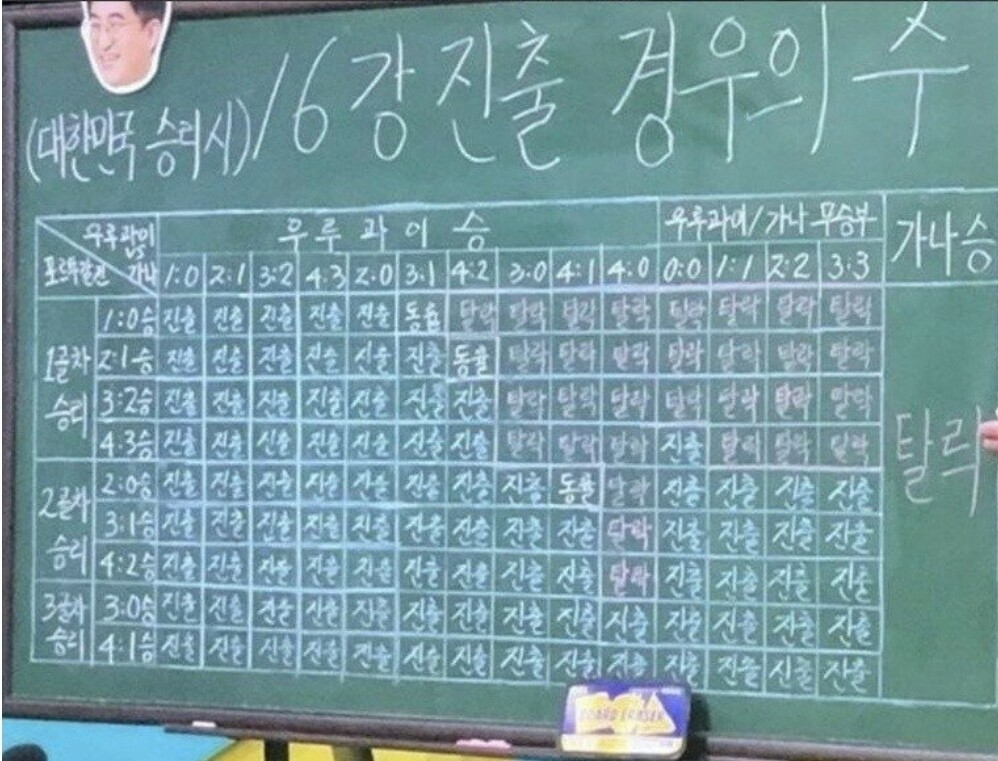 16강 진출 경우의 수
(대한민국 승리시)
우루과이 vs 가나
포르투갈전
우루과이 승
우루과이/가나 무승부
가나승
1:0 2:1 3:2 4:3 2:0 3:1 4:2 3:0 4:1 4:0 0:0 1:1 2:2 3:3
1골차 승리
1:0승 진출 진출 진출 진출 진출 동률 탈락 탈락 탈락 탈락 탈락 탈락 탈락 탈락
2:1승 진출 진출 진출 진출 진출 진출 동률 탈락 탈락 탈락 탈락 탈락 탈락 탈락
3:2승 진출 진출 진출 진출 진출 진출 진출 탈락 탈락 탈락 탈락 탈락 탈락 탈락
4:3승 진출 진출 진출 진출 진출 진출 진출 탈락 탈락 탈락 진출 탈락 탈락 탈락
2골차 승리
2:0승 진출 진출 진출 진출 진출 진출 진출 진출 동률 탈락 진출 진출 진출 진출
3:1승 진출 진출 진출 진출 진출 진출 진출 진출 진출 탈락 진출 진출 진출 진출
4:2승 진출 진출 진출 진출 진출 진출 진출 진출 진출 탈락 진출 진출 진출 진출
3골차 승리
3:0승 진출 진출 진출 진출 진출 진출 진출 진출 진출 진출 진출 진출 진출 진출
4:1승 진출 진출 진출 진출 진출 진출 진출 진출 진출 진출 진출 진출 진출 진출
탈락
BOARD ERASER